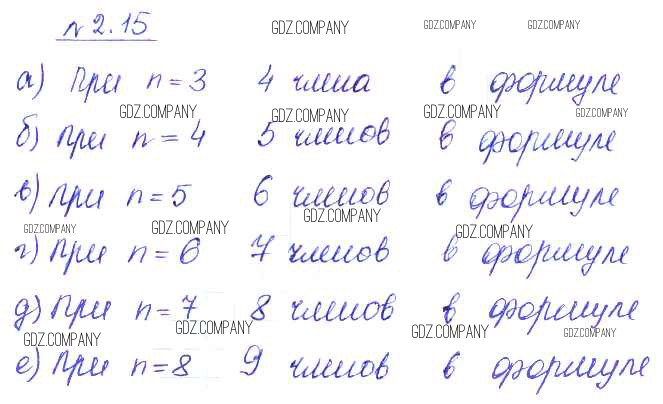 № 2.15 GDZ.COMPANY GDZ.COMPANY GDZ.COMPANY
а) При n=3 4 члена в формуле
GDZ.COMPANY GDZ.COMPANY GDZ.COMPANY GDZ.COMPANY
б) При n=4 5 членов в формуле
в) При n=5 6 членов в формуле
GDZ.COMPANY GDZ.COMPANY GDZ.COMPANY GDZ.COMPANY
г) При n=6 7 членов в формуле
д) При n=7 8 членов в формуле
GDZ.COMPANY GDZ.COMPANY GDZ.COMPANY GDZ.COMPANY
е) При n=8 9 членов в формуле